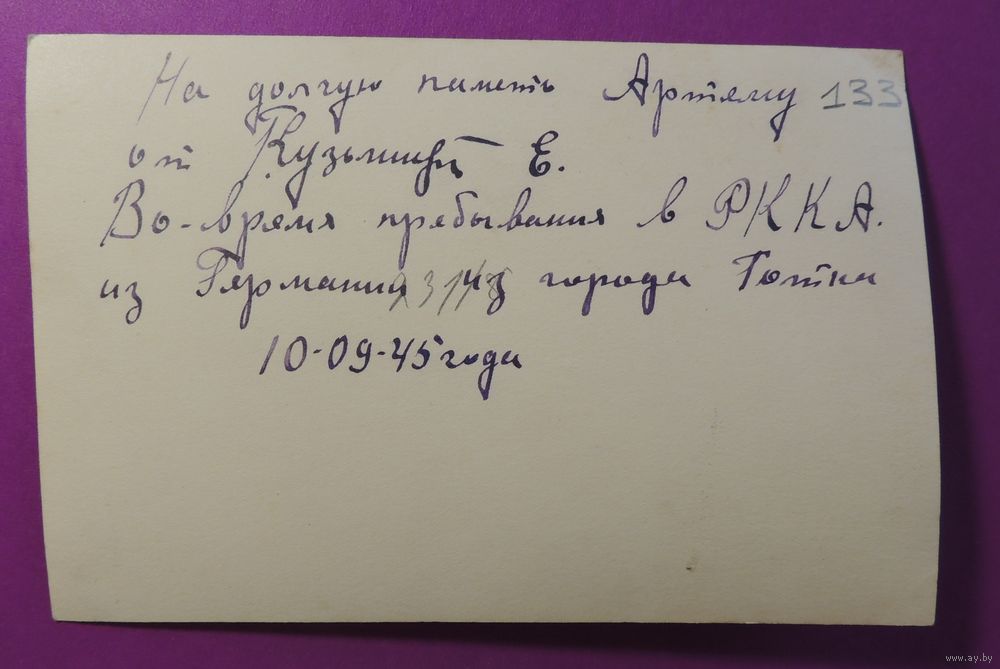 На долгую память Артяму 133
от Е.
Во-время пребывания в РККА.
из Германии из города Готки
10-09-45 года
www.ay.by